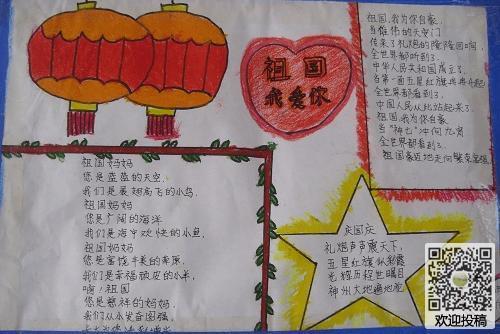 祖国
我爱你
祖国,我为你自豪,
当雄伟的天安门
传来了礼炮的隆隆回响,
全世界都听到了,
中华人民共和国成立了。
当第一面五星红旗冉冉升起,
全世界都看到了,
中国人民从此站起来了。
祖国,我为你自豪,
当“神七”冲向九霄
全世界都看到了,
祖国豪迈地走向繁荣富强
祖国妈妈
您是蓝蓝的天空,
我们是展翅高飞的小鸟,
祖国妈妈
您是广阔的海洋
我们是海中欢快的小鱼,
祖国妈妈
您是富饶丰美的草原,
我们是幸福顽皮的小羊,
啊!祖国
您是慈祥的妈妈,
我们从小发奋图强,
庆国庆
礼炮声声震天下,
五星红旗似彩霞
光辉历程世瞩目
神州大地遍地花
欢迎投稿